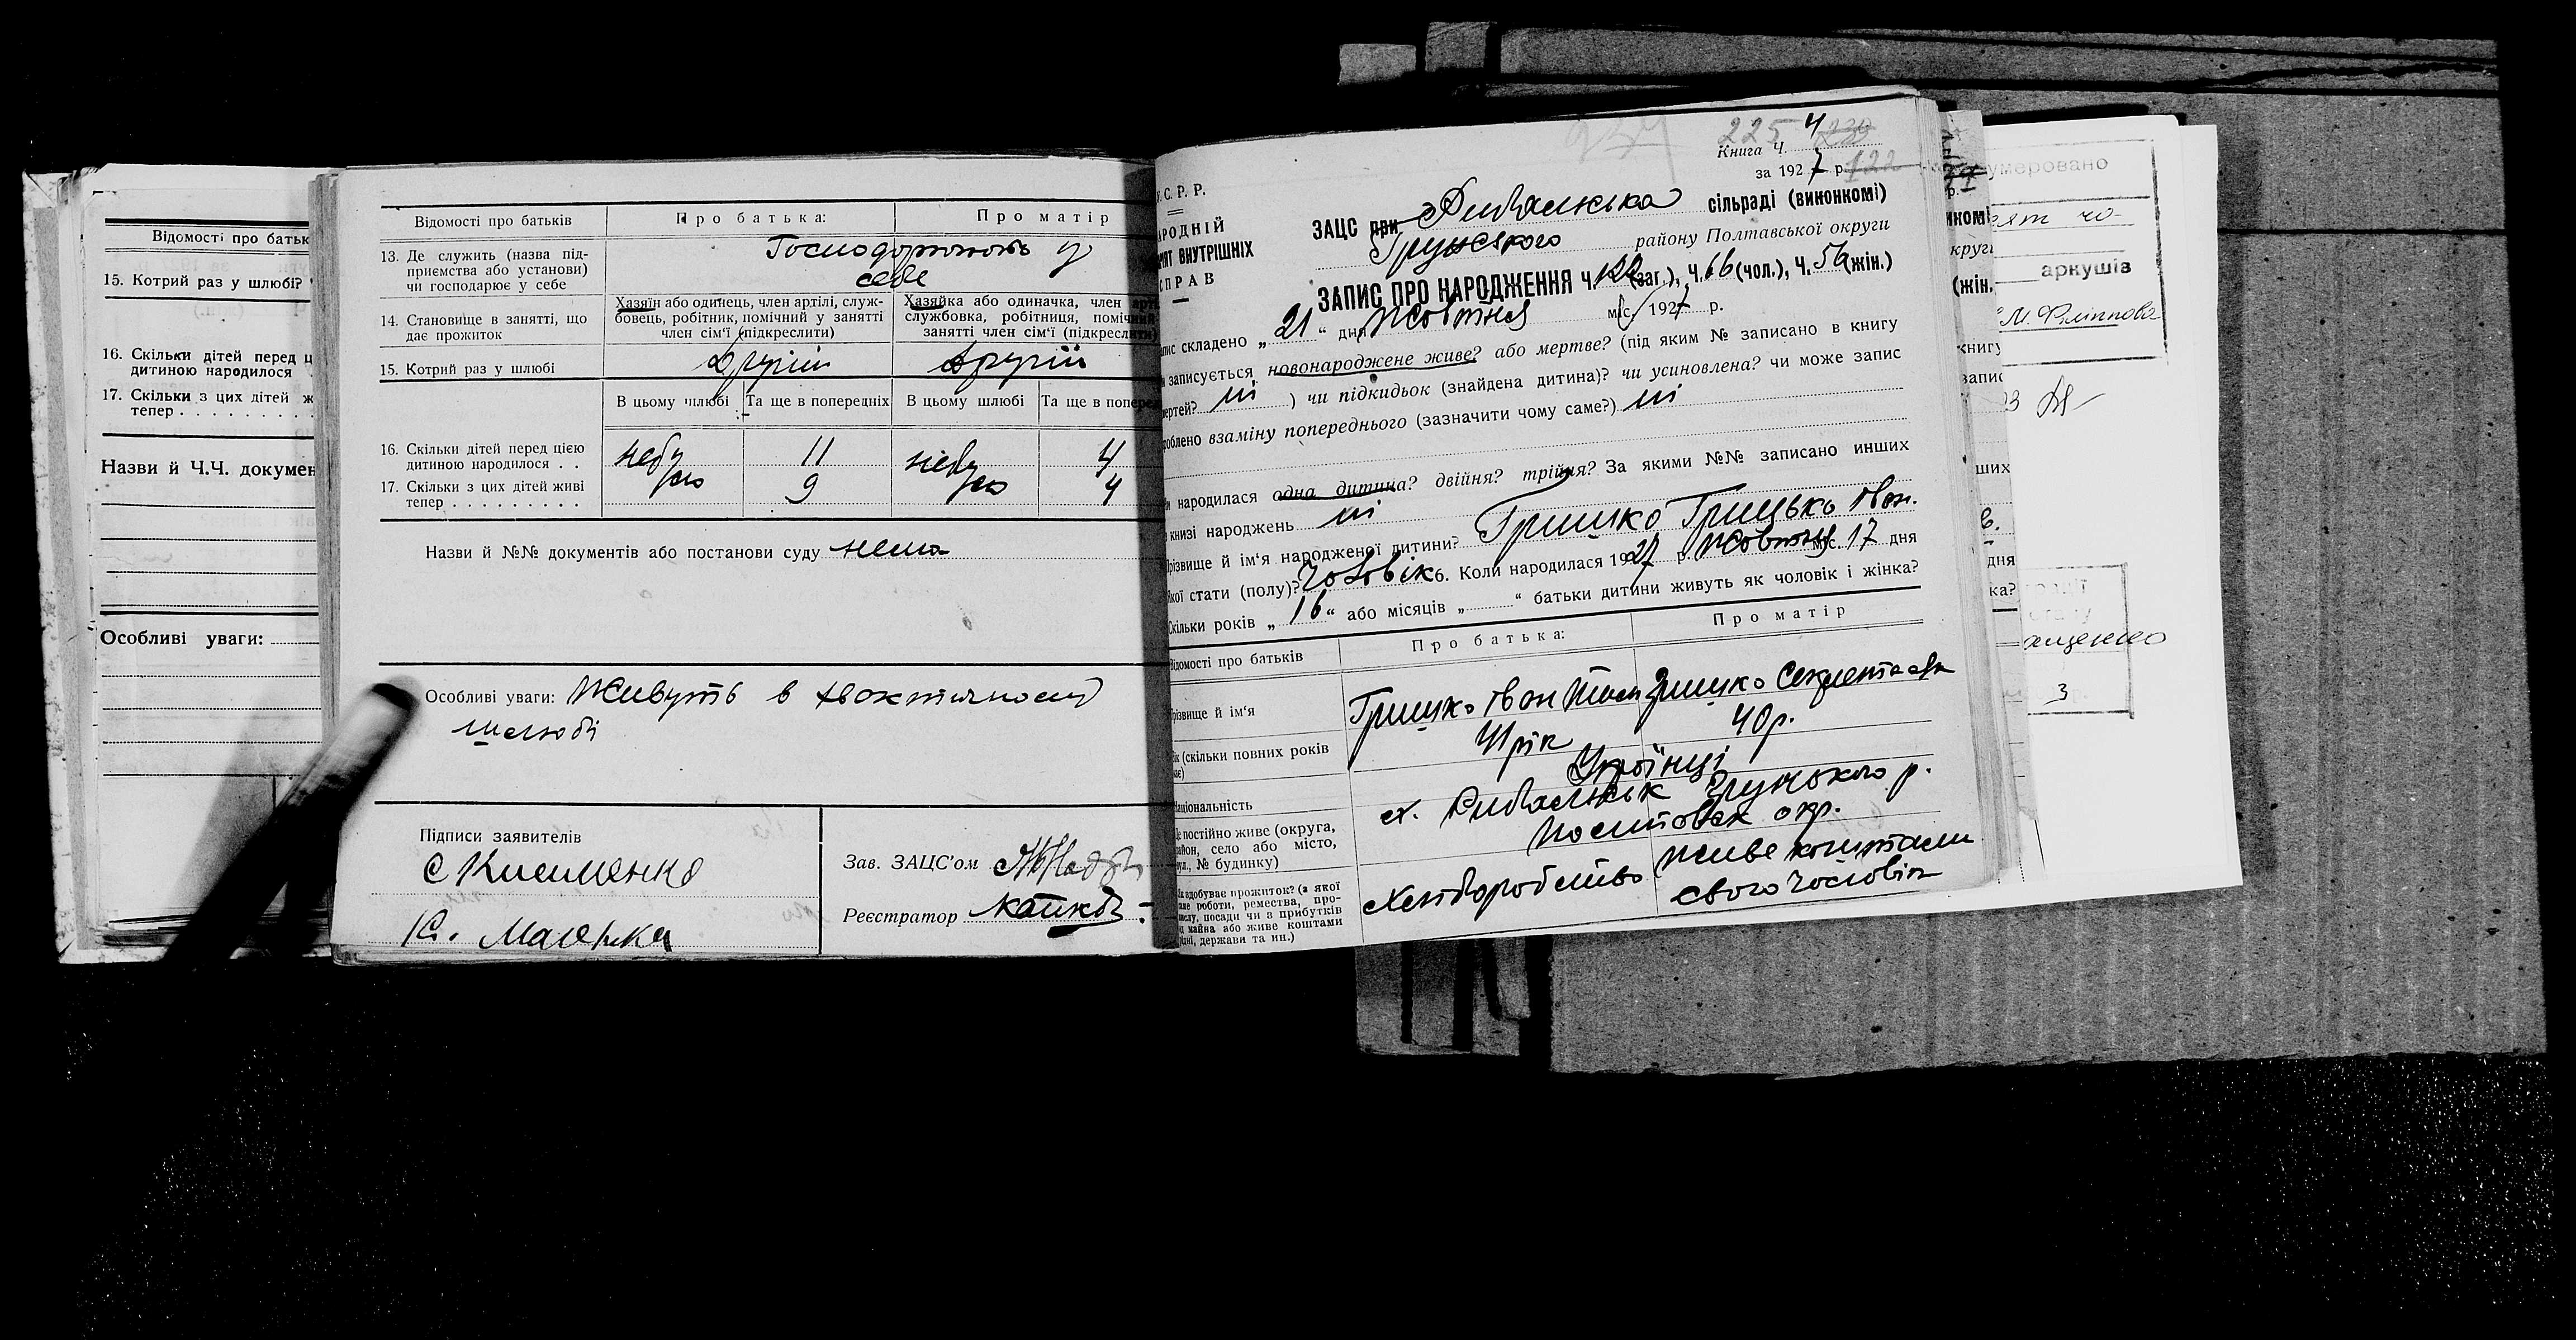 Відомості про батьк
15. Котрий раз у шлюбі?
16. Скільки дітей перед ц
дитиною народилося
17. Скільки з цих дітей ж
тепер
Назви й Ч.Ч. докумен
Особливі уваги:
Відомості про батьків
Про батька:
Про матір
13. Де служить (назва під-
приємства або установи)
чи господарює у себе
Господорюють у
себе
14. Становище в занятті, що
дає прожиток
Хазяїн або одинець, член артілі, служ-
бовець, робітник, помічний у занятті
член сім'ї (підкреслити)
Хазяйка або одиначка, член арті
службовка, робітниця, помічний
занятті член сім'ї (підкреслити)
15. Котрий раз у шлюбі
другий
другий
В цьому шлюбі
Та ще в попередніх
В цьому шлюбі
Та ще в поперед
16. Скільки дітей перед цією
дитиною народилося . .
небу
ло
11
небу
ло
4
17. Скільки з цих дітей живі
тепер
9
4
Назви й №№ документів або постанови суду нема
Особливі уваги: Живуть в
шлюбі
Підписи заявителів
С Клименко
К. Маленка
Зав. ЗАЦС'ом
Реєстратор
225 4 230
Книга Ч.
за 1927 р. 122
У.С.Р.Р.
АРОДНІЙ
ІЯТ ВНУТРІШНІХ
СПРАВ
ЗАЦС при Рибальська сільраді (виконкомі)
Грунського району Полтавської округи
ЗАПИС ПРО НАРОДЖЕННЯ Ч. 122 (заг.), Ч. 66 (чол.), Ч. 56 (жін.)
апис складено „21“ дня Жовтня міс. 1927 р.
и записується новонароджене живе? або мертве? (під яким № записано в книгу
мертей? ні ) чи підкидьок (знайдена дитина)? чи усиновлена? чи може запис
роблено взаміну попереднього (зазначити чому саме?) ні
и народилася одна дитина? двійня? трійня? За якими №№ записано инших
в книзі народжень ні
Прізвище й ім'я народженої дитини? Гришко Грицько Іван.
Якої стати (полу)? Чоловік 6. Коли народилася 1927 р. Жовтня міс. 17 дня
Скільки років „16“ або місяців „ “ батьки дитини живуть як чоловік і жінка?
Відомості про батьків
Про батька:
Про матір
Прізвище й ім'я
Гришко Іван
Гришко
Вік (скільки повних років
має)
41 рік
40 р.
Національність
Українці
Де постійно живе (округа,
район, село або місто,
вул., № будинку)
х. Рибальськ Грунського р.
Полтовськ окр.
Як здобуває прожиток? (з якої
саме роботи, ремества, про-
мислу, посади чи з прибутків
од майна або живе коштами
рідні, держави та ин.)
Хлібороблство
Живе коштами
свого Чоловіка
умеровано
аркушів
М. Філіппова
3